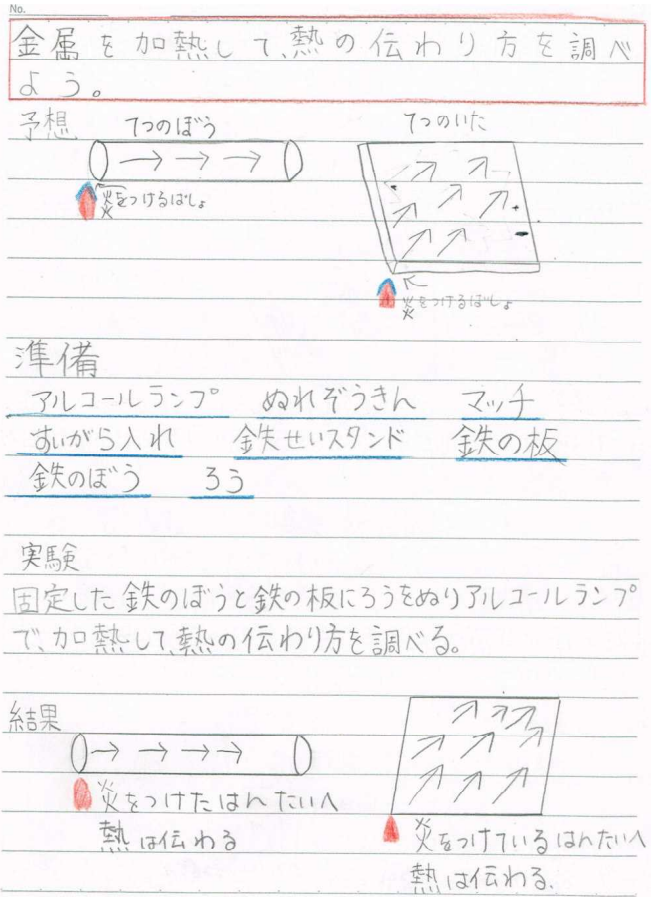 No.
金属を加熱して、熱の伝わり方を調べ
よう。
予想
てつのぼう
てつのいた
炎をつけるばしょ
炎をつけるばしょ
準備
アルコールランプ ぬれぞうきん マッチ
すいがら入れ 鉄せいスタンド 鉄の板
鉄のぼう ろう
実験
固定した鉄のぼうと鉄の板にろうをぬりアルコールランプ
で、加熱して、熱の伝わり方を調べる。
結果
炎をつけたはんたいへ
熱は伝わる
炎をつけているはんたいへ
熱は伝わる.